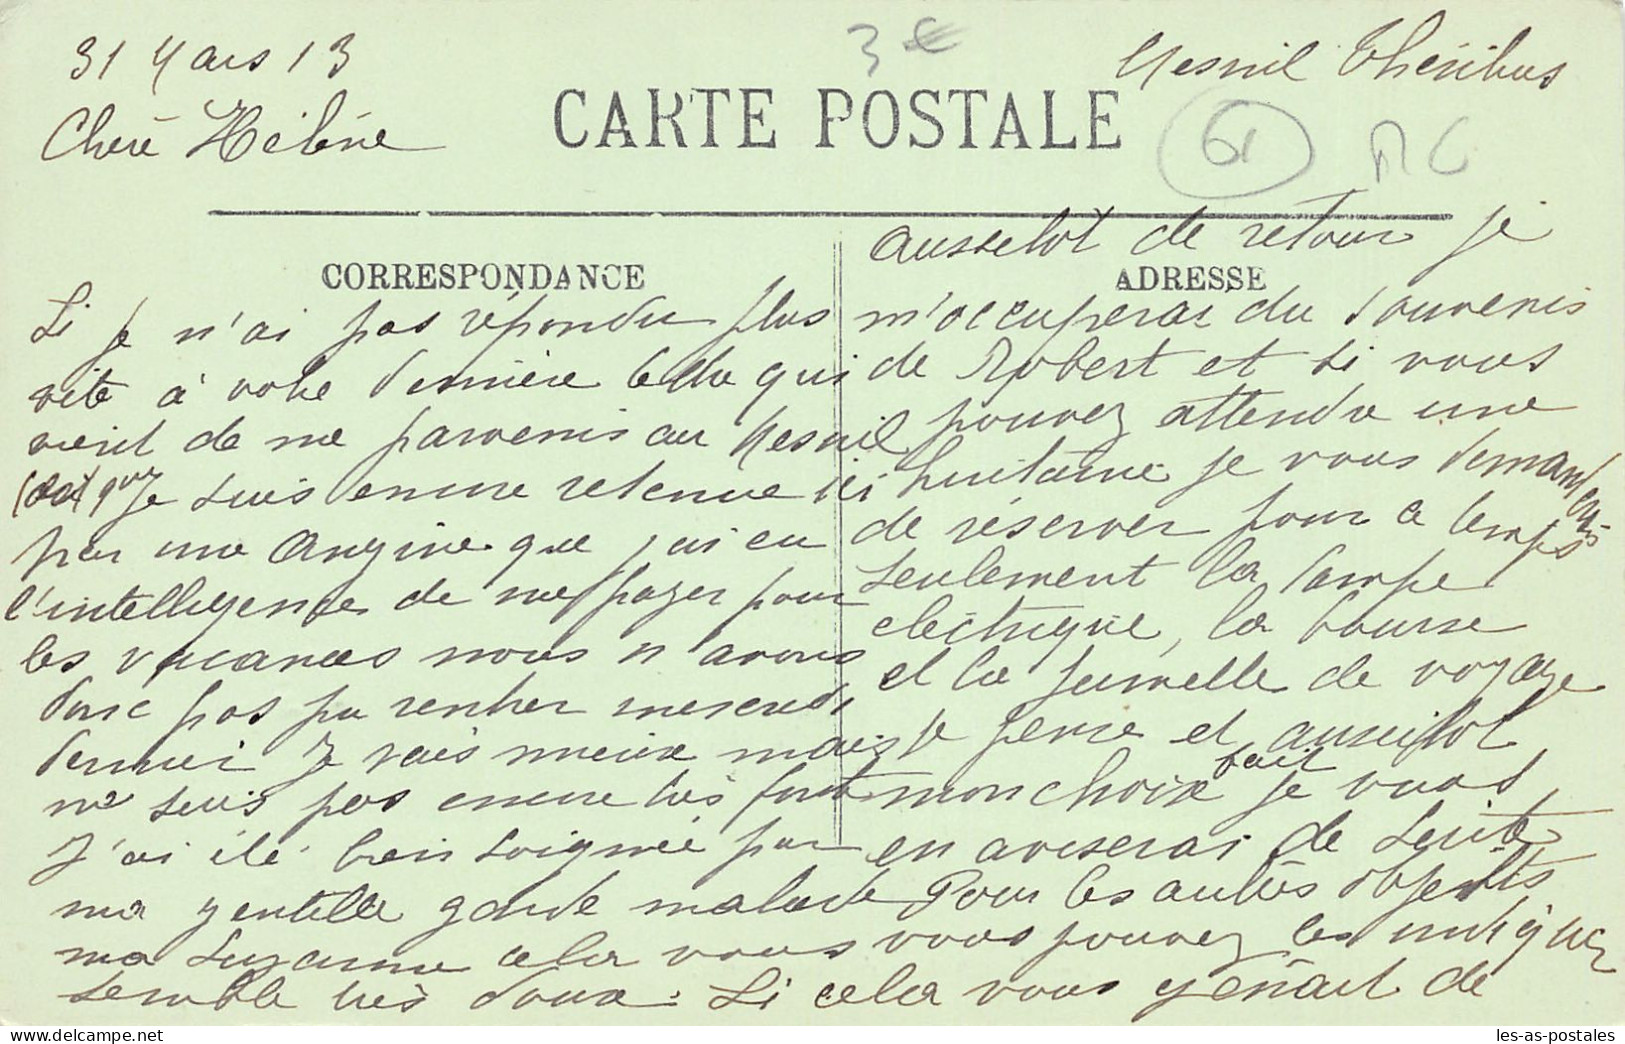 31 Mars 13
Mesnil Théribus
3 €
Chère Hélène
CARTE POSTALE
61
MC
CORRESPONDANCE
Si je n'ai pas répondu plus
vite à votre dernière celle qui
vient de me parvenir au Mesnil
que je suis encore retenue ici
par une angine que j'ai eu
l'intelligence de me payer pour
les vacances nous n'avons
donc pas pu rentrer mercredi
dernier Je vais mieux mais
ne suis pas encore très forte
J'ai été bien soignée par
ma gentille garde malade
ma Suzanne cela vous
semble très doux. Si cela vous gênait de
ADRESSE
aussetot de retour je
m'occuperai du souvenir
de Robert et si vous
pouvez attendre une
huitaine je vous demanderais
de réserver pour ce temps
seulement la lampe
électrique, la bourse
et la jumelle de voyage
je pense et aussitot
mon choix fait je vous
en aviserai de suite
Pour les autres objets
vous pouvez les indiquer
les-as-postales